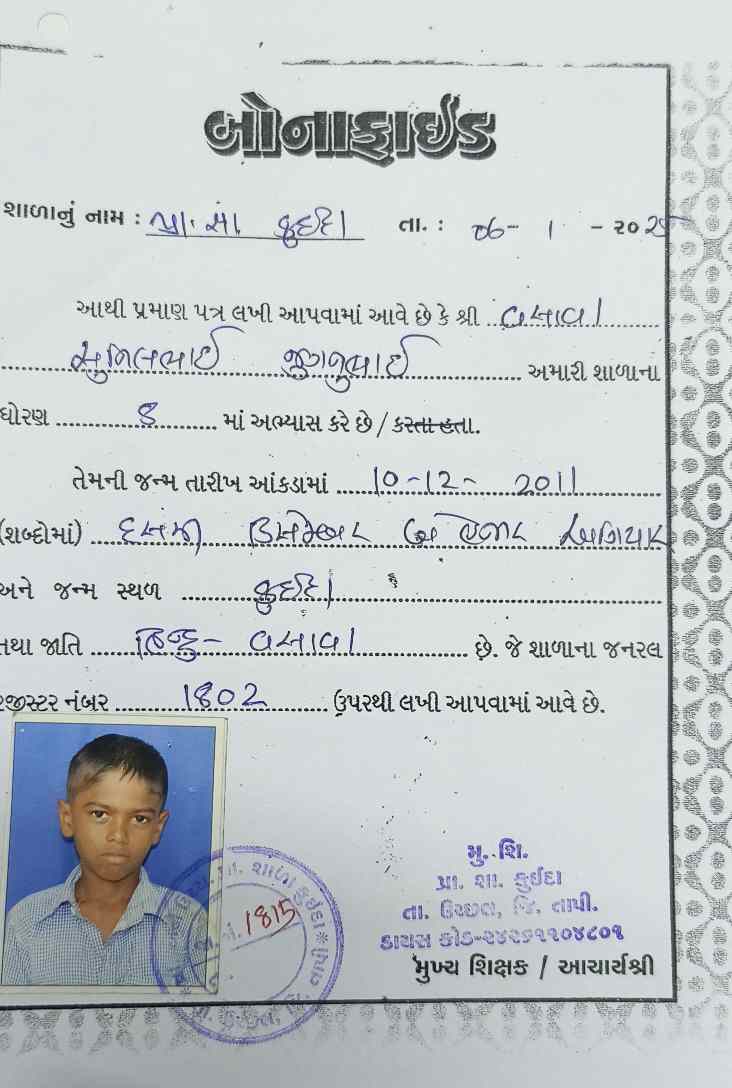 બોનાફાઈડ
શાળાનું નામ : પ્રા. સા કુઈદા તા. : 06- 1 - ૨૦૨૫
આથી પ્રમાણ પત્ર લખી આપવામાં આવે છે કે શ્રી વસાવા
સુનિલભાઈ જુગનુભાઈ અમારી શાળાના
ધોરણ ૬ માં અભ્યાસ કરે છે / કરતા હતા.
તેમની જન્મ તારીખ આંકડામાં 10-12- 2011
(શબ્દોમાં) દસમી ડિસેમ્બર બે હજાર અગિયાર
અને જન્મ સ્થળ કુઈદા
તથા જાતિ હિન્દુ - વસાવા છે. જે શાળાના જનરલ
રજીસ્ટર નંબર 1802 ઉપરથી લખી આપવામાં આવે છે.
મુ. શિ.
પ્રા. શા. કુઈદા
તા. ઉચ્છલ, જિ. તાપી.
ડાયસ કોડ-૨૪૨૬૧૧૦૪૮૦૧
મુખ્ય શિક્ષક / આચાર્યશ્રી
પ્રા. શાળા કુઈદા
1815
તા. ઉચ્છલ, જિ. તાપી